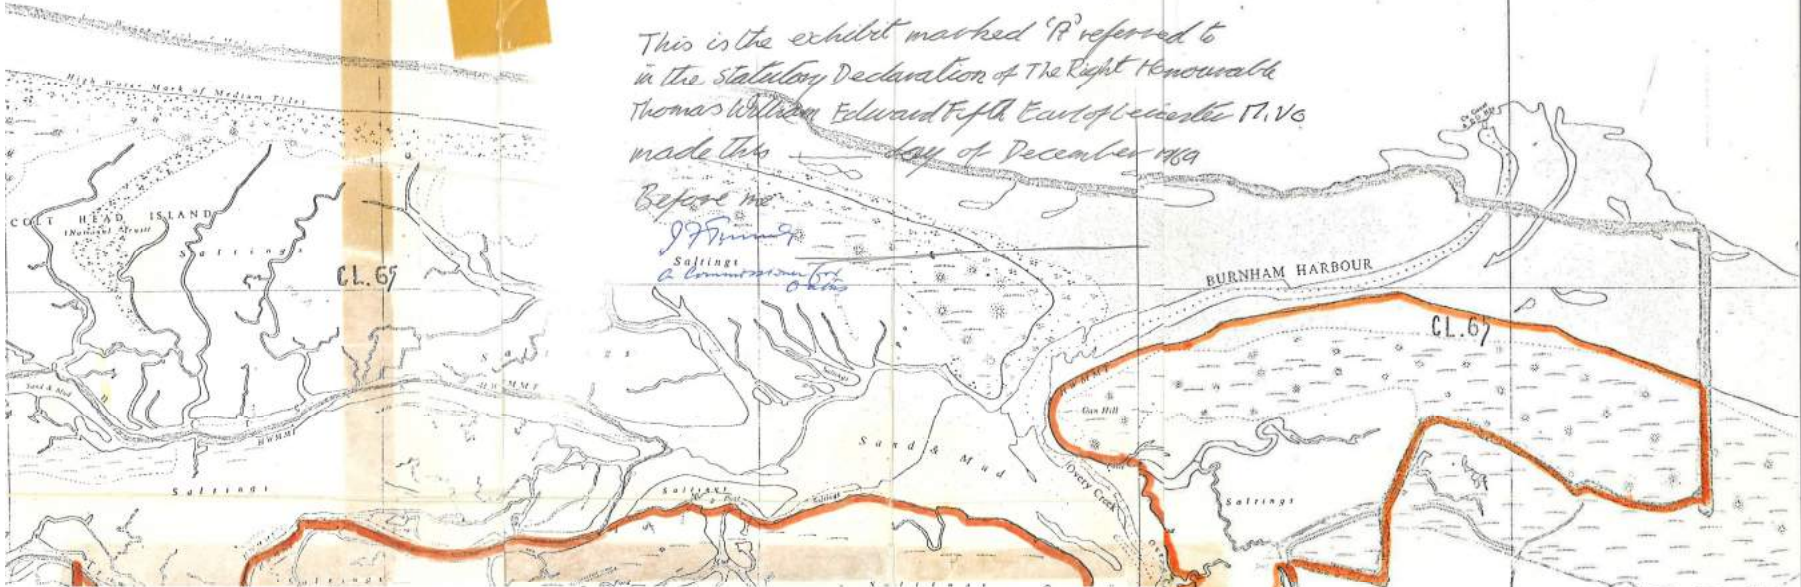 This is the exhibit marked 'A' referred to
in the Statutory Declaration of The Right Honourable
Thomas William Edward Fifth Earl of Leicester M.V.O
made this day of December 1969
Before me
Saltings
a Commissioner for
Oaths
High Water Mark of Medium Tides
COLT HEAD ISLAND
(National Trust)
Saltings
CL.65
BURNHAM HARBOUR
CL.65
Sand & Mud
HWMMT
HWMMT
Saltings
HWMMT
Gun Hill
Sand & Mud
Overy Creek
Saltings
Saltings
Saltings
Saltings
Saltings